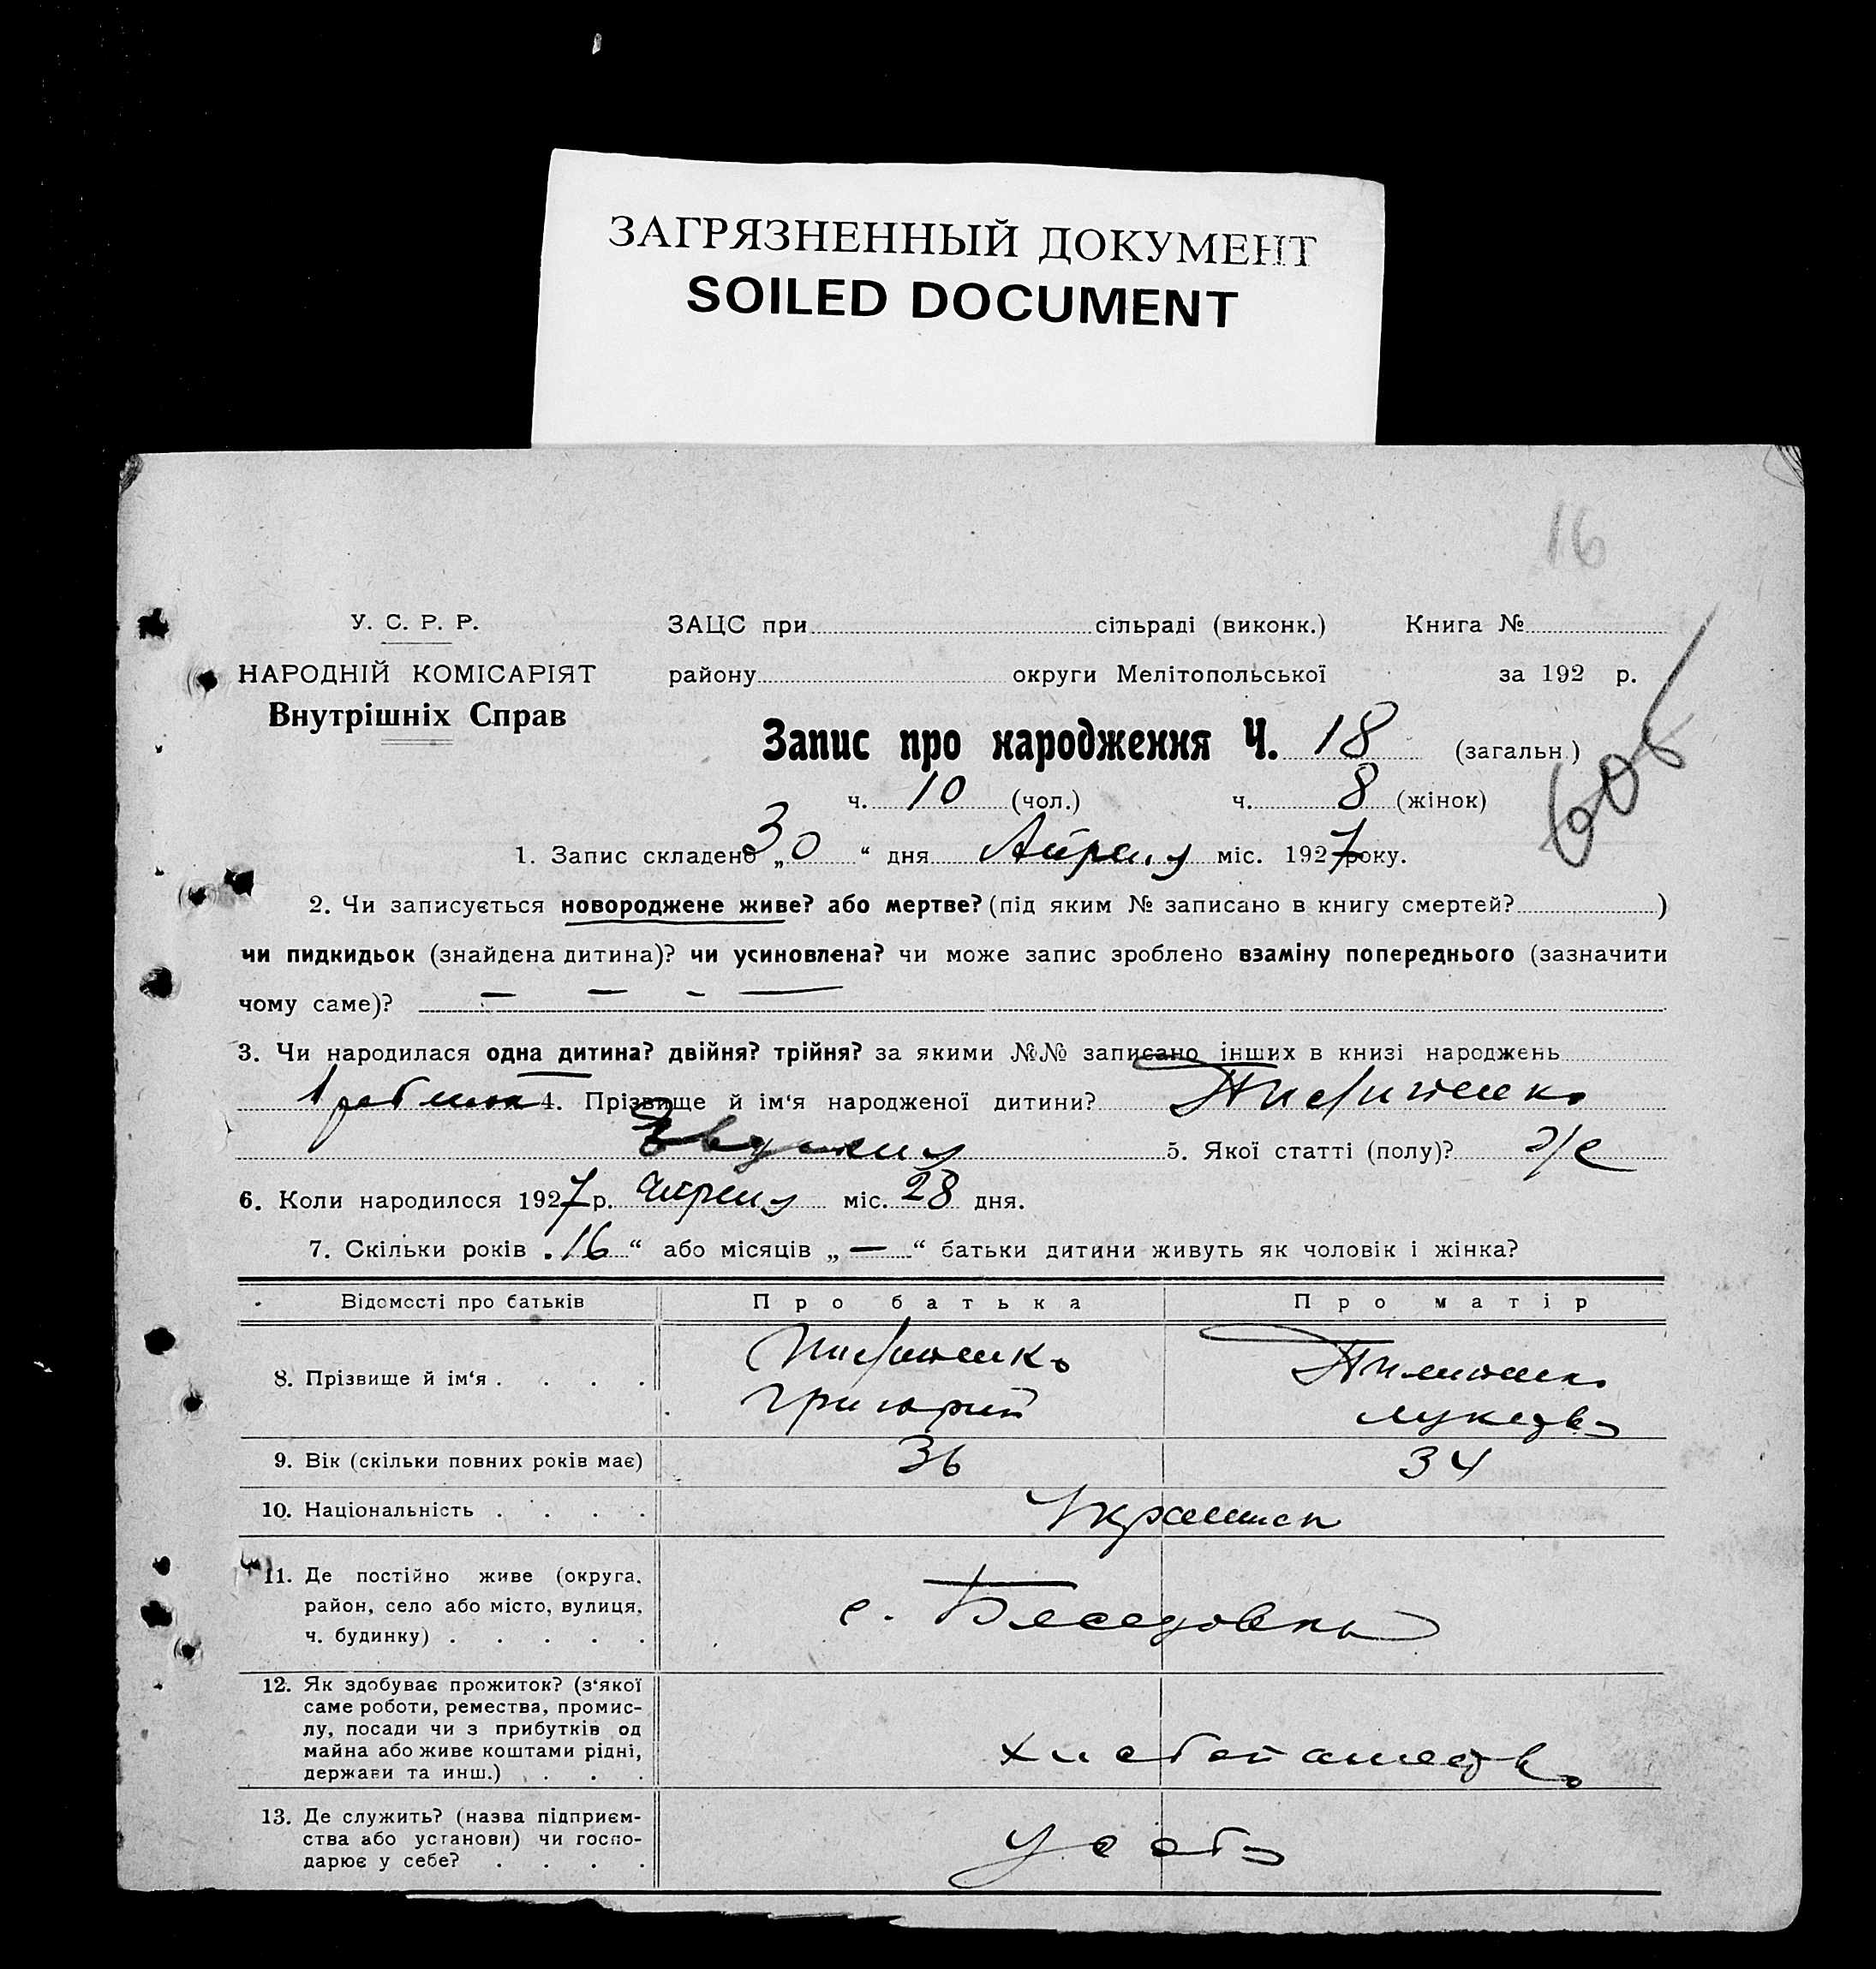 ЗАГРЯЗНЕННЫЙ ДОКУМЕНТ
SOILED DOCUMENT
16
У. С. Р. Р.
НАРОДНІЙ КОМІСАРІЯТ
Внутрішніх Справ
ЗАЦС при сільраді (виконк.) Книга №
району округи Мелітопольської за 192 р.
Запис про народження Ч. 18 (загальн.)
ч. 10 (чол.) ч. 8 (жінок)
1. Запис складено „30“ дня Апреля міс. 1927 року.
2. Чи записується новороджене живе? або мертве? (під яким № записано в книгу смертей? )
чи пидкидьок (знайдена дитина)? чи усиновлена? чи може запис зроблено взаміну попереднього (зазначити
чому саме)? — — - —
3. Чи народилася одна дитина? двійня? трійня? за якими №№ записано інших в книзі народжень
1 4. Прізвище й ім‘я народженої дитини?
5. Якої статті (полу)? ж
6. Коли народилося 1927 р. Апреля міс. 28 дня.
7. Скільки років „16“ або місяців „—“ батьки дитини живуть як чоловік і жінка?
Відомості про батьків Про батька Про матір
8. Прізвище й ім‘я . . . .
Григорий
9. Вік (скільки повних років має) 36 34
10. Національність . . . .
11. Де постійно живе (округа,
район, село або місто, вулиця,
ч. будинку) . . . . .
с.
12. Як здобуває прожиток? (з‘якої
саме роботи, ремества, промис-
лу, посади чи з прибутків од
майна або живе коштами рідні,
держави та инш.) . . .
13. Де служить? (назва підприєм-
ства або установи) чи госпо-
дарює у себе? . . . .